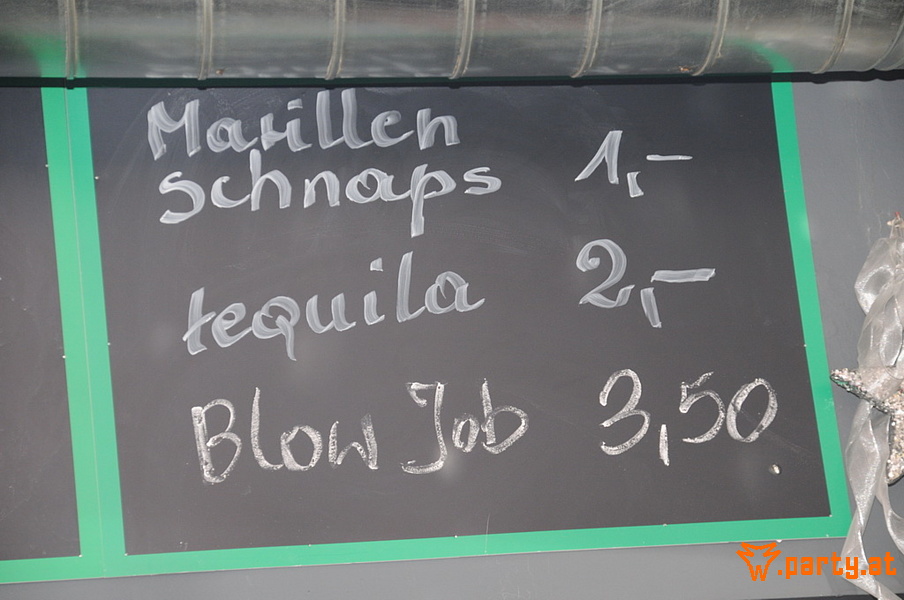 Marillen
schnaps 1,-
tequila 2,-
Blow Job 3,50
w.party.at